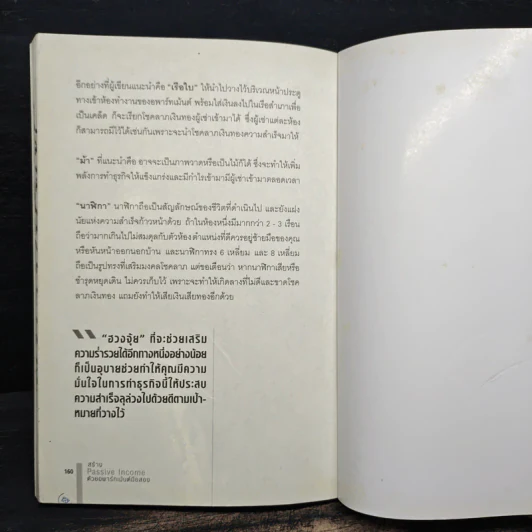 อีกอย่างที่ผู้เขียนแนะนำคือ "เรือใบ" ให้นำไปวางไว้บริเวณหน้าประตู
ทางเข้าห้องทำงานของอพาร์ทเม้นต์ พร้อมใส่เงินลงไปในเรือสำเภาเพื่อ
เป็นเคล็ด ก็จะเรียกโชคลาภเงินทองผู้เช่าเข้ามาได้ ซึ่งผู้เช่าแต่ละห้อง
ก็สามารถมีไว้ได้เช่นกันเพราะจะนำโชคลาภเงินทองความสำเร็จมาให้
"ม้า" ที่แนะนำคือ อาจจะเป็นภาพวาดหรือเป็นไม้ก็ได้ ซึ่งจะทำให้เพิ่ม
พลังการทำธุรกิจให้แข็งแกร่งและมีกำไรเข้ามามีผู้เช่าเข้ามาตลอดเวลา
"นาฬิกา" นาฬิกาถือเป็นสัญลักษณ์ของชีวิตที่ดำเนินไป และยังแฝง
นัยแห่งความสำเร็จก้าวหน้าด้วย ถ้าในห้องหนึ่งมีมากกว่า 2 - 3 เรือน
ถือว่ามากเกินไปไม่สมดุลกับตัวห้อง ตำแหน่งที่ดีควรอยู่ซ้ายมือของคุณ
หรือหันหน้าออกนอกบ้าน และนาฬิกาทรง 6 เหลี่ยม และ 8 เหลี่ยม
ถือเป็นรูปทรงที่เสริมมงคลโชคลาภ แต่ขอเตือนว่า หากนาฬิกาเสียหรือ
ชำรุดหยุดเดิน ไม่ควรเก็บไว้ เพราะจะทำให้เกิดลางที่ไม่ดีและขาดโชค
ลาภเงินทอง แถมยังทำให้เสียเงินเสียทองอีกด้วย
"ฮวงจุ้ย" ที่จะช่วยเสริม
ความร่ำรวยได้อีกทางหนึ่งอย่างน้อย
ก็เป็นอุบายช่วยทำให้คุณมีความ
มั่นใจในการทำธุรกิจนี้ให้ประสบ
ความสำเร็จลุล่วงไปด้วยดีตามเป้า-
หมายที่วางไว้
160
สร้าง
Passive Income
ด้วยอพาร์ทเม้นต์มือสอง